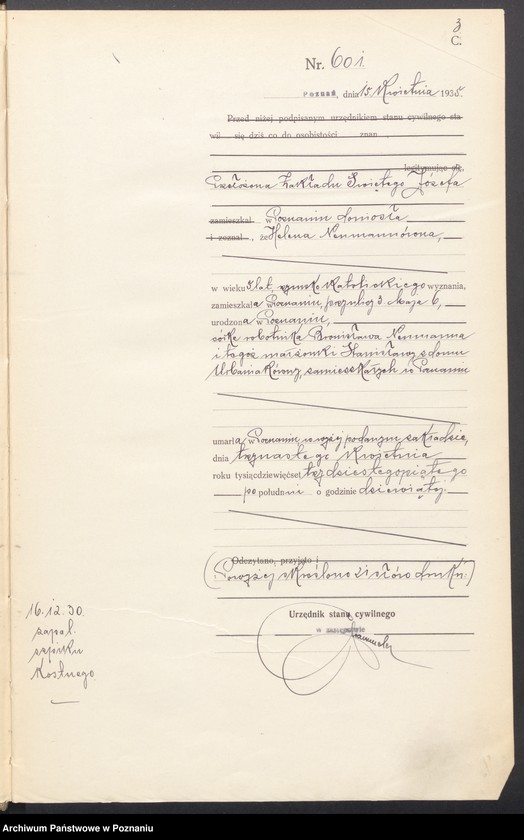 3
C.
Nr. 601.
Poznań, dnia 15. Kwietnia 1935.
Przed niżej podpisanym urzędnikiem stanu cywilnego sta-
wił się dziś co do osobistości znan
legitymując się,
Przełożona Zakładu Świętego Józefa
zamieszkał w Poznaniu doniosła
i zeznał, że Helena Neumannówna,
w wieku 5 lat, rzymsko katolickiego wyznania,
zamieszkała w Poznaniu, przy ulicy 3. Maja 6,
urodzona w Poznaniu,
córka robotnika Bronisława Neumanna
i tegoż małżonki Stanisławy z domu
Urbaniakówny, zamieszkałych w Poznaniu
umarła w Poznaniu w wyżej podanym zakładzie,
dnia trzynastego Kwietnia
roku tysiącdziewięćset trzydziestegopiątego
po południu o godzinie dziewiątej.
Odczytano, przyjęto i
(Powyżej skreślono słów druku.)
Urzędnik stanu cywilnego
w zastępstwie
16.12.30.
zapal.
szpiku
kostnego
Archiwum Państwowe w Poznaniu